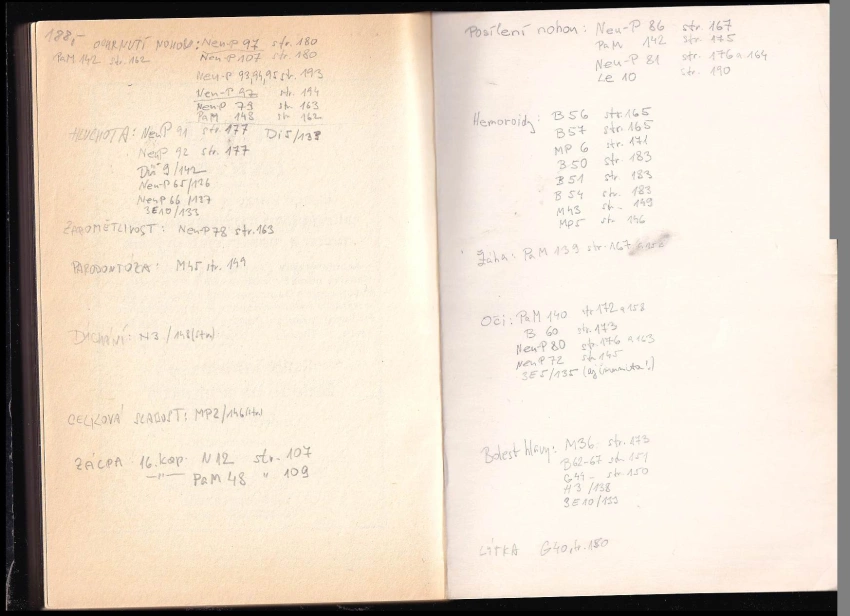 188,-
OCHRNUTÍ NOHOU: Neu-P 97 str. 180
PaM 142 str. 162 Neu-P 107 str. 180
Neu-P 93,94,95 str. 193
Neu-P 97 str. 194
Neu-P 79 str. 163
PaM 148 str. 162
HLUCHOTA: Neu-P 91 str. 177
Neu-P 92 str. 177
9/142
Neu-P 65/136
Neu-P 66/137
3E10/133
ZAPOMĚTLIVOST: Neu-P 78 str. 163
PARODONTÓZA: M45 str. 149
DÝCHÁNÍ: N3
CELKOVÁ SLABOST: MP2/146
ZÁCPA 16. kap. N12 str. 107
—"— PaM 48 " 109
Posílení nohou: Neu-P 86 str. 167
PaM 142 str. 175
Neu-P 81 str. 176 a 164
Le 10 str. 190
Hemoroidy: B 56 str. 165
B 57 str. 165
MP 6 str. 171
B 50 str. 183
B 51 str. 183
B 54 str. 183
M43 str. 149
MP5 str. 146
Žáha: PaM 139 str. 167
Oči: PaM 140 str. 172 a 158
B 60 str. 173
Neu-P 80 str. 176 a 163
Neu-P 72 str. 145
3E5/135
Bolest hlavy: M36 str. 173
B62-67 str. 151
G44 - str. 150
H3/138
3E10/133
LÝTKA G40, str. 150